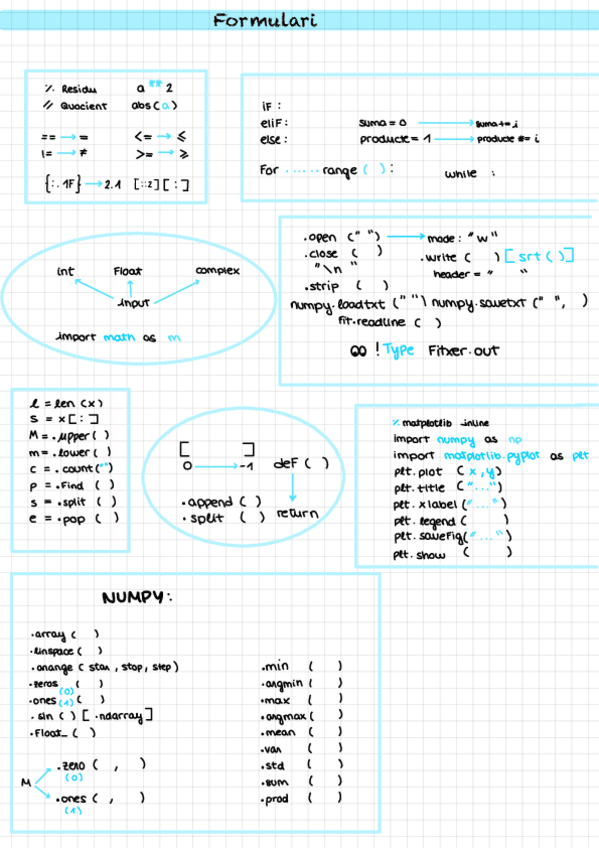 Formulari
% Residu a ** 2
// Quocient abs(a)
== → =
!= → ≠
<= → ≤
>= → ≥
{:.1F} → 2.1 [::2] [:]
iF:
eliF:
else:
suma = 0 → suma += i
producte = 1 → producte *= i
For ...... range ( ):
while :
int Float complex
input
import math as m
.open (" ") → mode: "w"
.close ( ) .write ( ) [srt ( )]
"\n" header = " "
.strip ( )
numpy.loadtxt (" ") \ numpy.savetxt (" ", )
fit.readline ( )
!Type Fitxer.out
l = len (x)
S = x [:]
M = .upper ( )
m = .lower ( )
c = .count ("")
p = .Find ( )
s = .split ( )
e = .pop ( )
[ ]
0 → -1
.append ( )
.split ( )
deF ( )
return
% matplotlib -inline
import numpy as np
import matplotlib.pyplot as plt
plt.plot (x,y)
plt.title ("...")
plt.xlabel ("...")
plt.legend ( )
plt.saveFig ("...")
plt.show ( )
NUMPY:
.array ( )
.linspace ( )
.arange (star, stop, step)
.zeros ( )
(0)
.ones ( )
(1)
.sin ( ) [.ndarray]
.Float_ ( )
M
.zero ( , )
(0)
.ones ( , )
(1)
.min ( )
.argmin ( )
.max ( )
.argmax ( )
.mean ( )
.var ( )
.std ( )
.sum ( )
.prod ( )